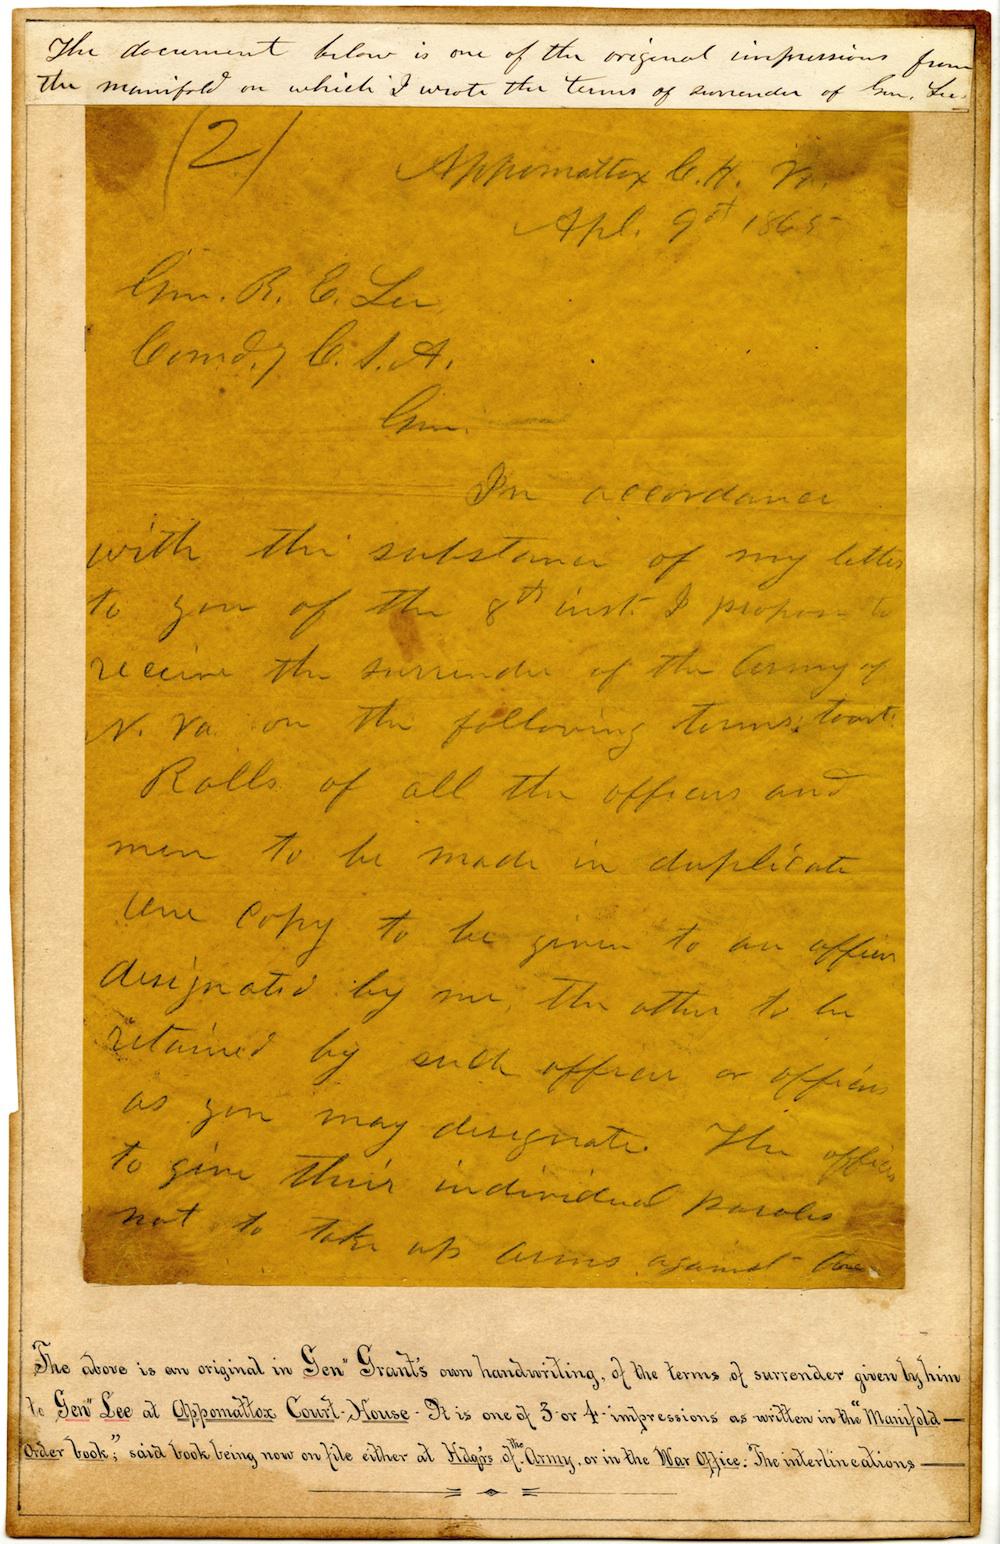 The document below is one of the original impressions from
the manifold on which I wrote the terms of surrender of Gen. Lee.
(2)
Appomattox C. H. Va.
Apl. 9th 1865
Gen. R. E. Lee
Comd.g C. S. A.
Gen.
In accordance
with the substance of my letter
to you of the 8th inst. I propose to
receive the surrender of the Army of
N. Va. on the following terms: towit:
Rolls of all the officers and
men to be made in duplicate
One copy to be given to an officer
designated by me, the other to be
retained by such officer or officers
as you may designate. The officers
to give their individual paroles
not to take up arms against the
The above is an original in Genˡˡ Grant's own handwriting, of the terms of surrender given by him
to Genˡˡ Lee at Appomattox Court-House - It is one of 3 or 4 impressions as written in the "Manifold —
Order book;" said book being now on file either at Hdqrs of the Army, or in the War Office: The interlineations —